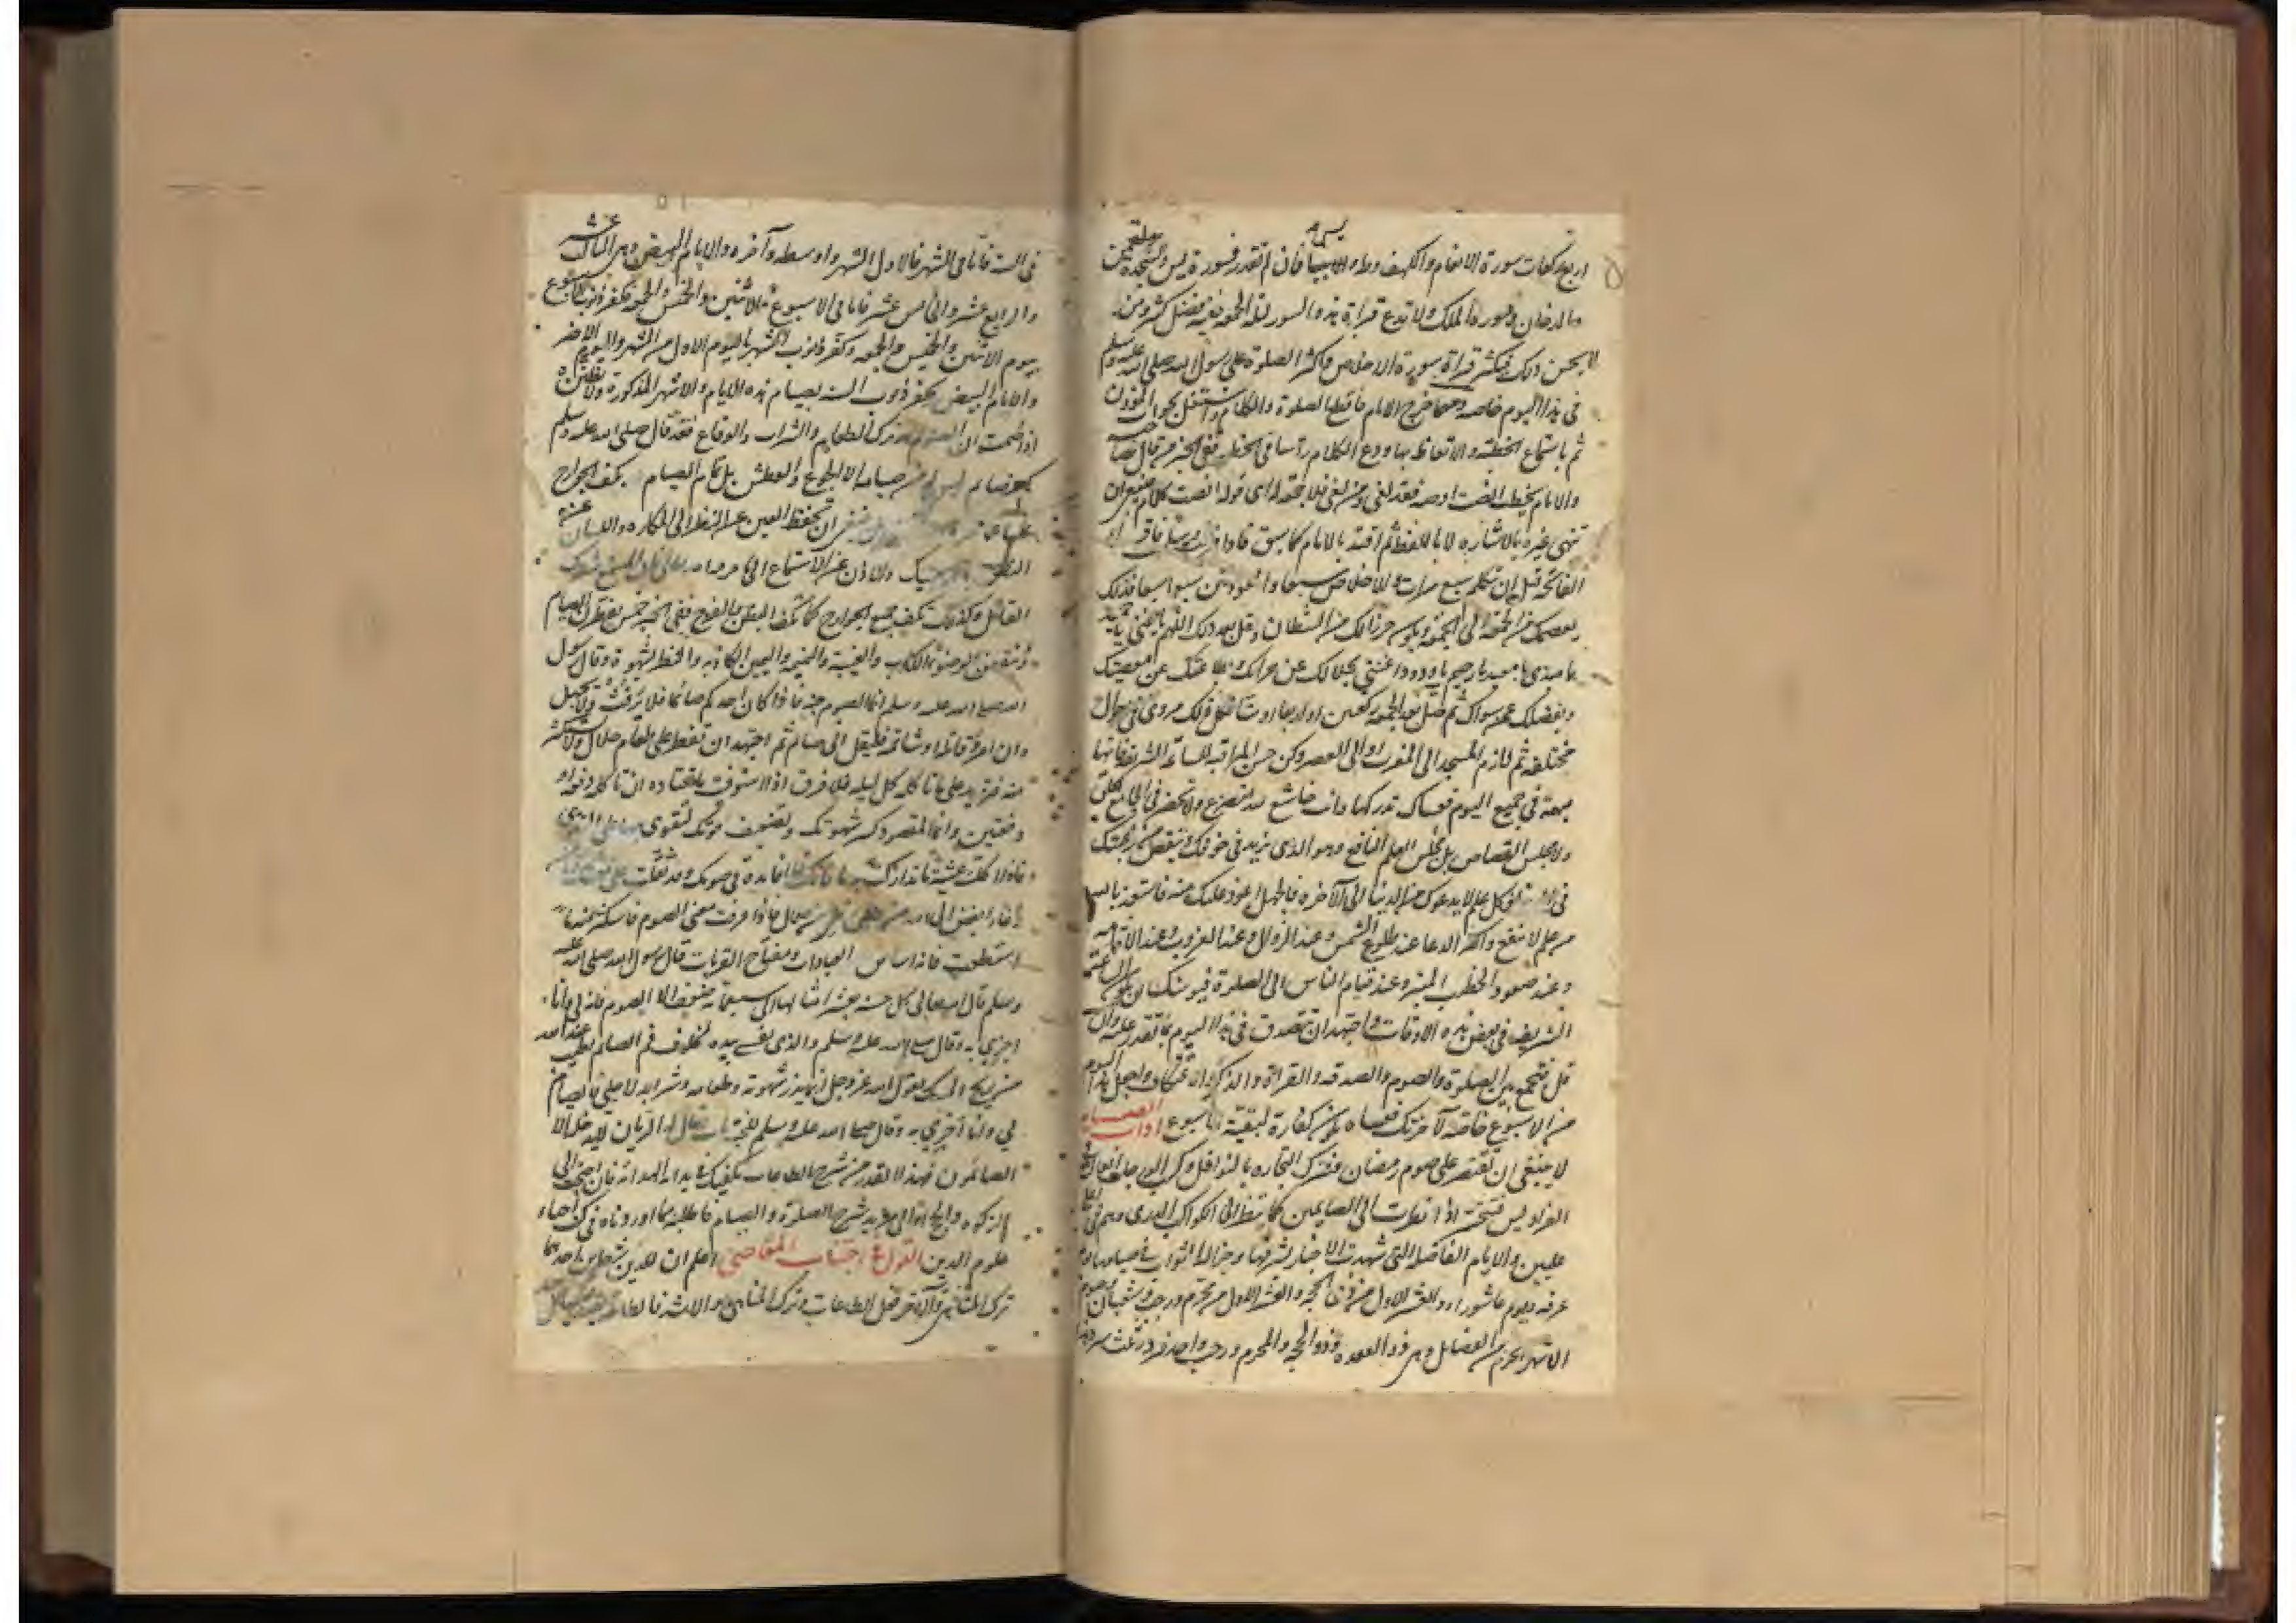 اربع ركعات سورة الانعام والكهف وطه ويس فان لم تقدر فسورة يس والسجدة لقمن
والدخان وسورة الملك ولا تدع قراءة هذه السور ليلة الجمعة ففيه فضل كثير ومن
لا يحسن ذلك فيكثر قراءة سورة الاخلاص واكثر الصلوة على رسول الله صلى الله عليه وسلم
فى هذا اليوم خاصة ومهما خرج الامام فاقطع الصلوة والكلام واشتغل بجواب المؤذن
ثم باستماع الخطبة والاتعاظ بها ودع الكلام رأسا فى الخطبة ففى الخبر من قال لصاحبه
والامام يخطب انصت او صه فقد لغى ومن لغى فلا جمعة له اى قوله انصت كلام فينبغى ان
تنهى غيره بالاشارة لا باللفظ ثم اقتد بالامام كما سبق فاذا فرغت وسلمت فاقرأ
الفاتحة قبل ان تتكلم سبع مرات والاخلاص سبعا والمعوذتين سبعا سبعا فذلك
يعصمك من الجمعة الى الجمعة ويكون حرزا لك من الشيطان وقل بعد ذلك اللهم يا غنى يا حميد
يا مبدى يا معيد يا رحيم يا ودود اغننى بحلالك عن حرامك وبطاعتك عن معصيتك
وبفضلك عمن سواك ثم صل بعد الجمعة ركعتين او اربعا او ستا فكل ذلك مروى فى احوال
مختلفة ثم لازم المسجد الى المغرب او الى العصر وكن حسن المراقبة للساعة الشريفة فانها
مبهمة فى جميع اليوم فعساك تدركها وانت خاشع لله متضرع ولا تحضر فى الجامع الحلق
ولا مجلس القصاص بل مجلس العلم النافع وهو الذى يزيد فى خوفك وينقص من رغبتك
فى الدنيا فكل علم لا يدعوك من الدنيا الى الآخرة فالجهل اعود عليك منه فاستعذ بالله
من علم لا ينفع واكثر الدعا عند طلوع الشمس وعند الزوال وعند الغروب وعند الاقامة
وعند صعود الخطيب المنبر وعند قيام الناس الى الصلوة فيوشك ان يكون الساعة
الشريفة فى بعض هذه الاوقات واجتهد ان تتصدق فى هذا اليوم بما تقدر عليه وان
قل فتجمع بين الصلوة والصوم والصدقة والقراءة والذكر والاعتكاف واجعل هذا اليوم
من الاسبوع خاصة لآخرتك فعساه يكون كفارة لبقية الاسبوع آداب الصيام
لا ينبغى ان تقتصر على صوم رمضان فتترك التجارة بالنوافل وكسب الدرجات العالية فى
الفراديس فتتحسر اذا نظرت الى الصايمين كما تنظر الى الكواكب الدرى وهم فى اعلى
عليين والايام الفاضلة التى شهدت الاخبار بشرفها وجزالة الثواب فى صيامها يوم
عرفة ويوم عاشوراء والعشر الاول من ذى الحجة والعشر الاول من محرم ورجب وشعبان وصوم
الاشهر الحرم من الفضايل وهى ذو القعدة وذو الحجة والمحرم ورجب واحد فرد وثلث سرد وهذا
فى السنة فاما فى الشهر فالاول الشهر واوسطه وآخره والايام البيض وهى الثالث عشر
والرابع عشر والخامس عشر فاما فى الاسبوع فالاثنين والخميس والجمعة فتكفر ذنوب الاسبوع
بيوم الاثنين والخميس والجمعة وتكفر ذنوب الشهر باليوم الاول من الشهر واليوم الاخر
والايام البيض وتكفر ذنوب السنة بصيام هذه الايام والاشهر المذكورة ولا تظنن
اذا صمت ان الصوم هو ترك الطعام والشراب والوقاع فقد قال صلى الله عليه وسلم
كم من صايم ليس له من صيامه الا الجوع والعطش بل تمام الصيام بكف الجوارح
ينبغى ان تحفظ العين عن النظر الى المكاره واللسان عن
النطق بما لا يعنيك والاذن عن الاستماع الى ما حرمه الله فان المستمع شريك
القائل وكذلك تكف جميع الجوارح كما تكف البطن والفرج ففى الخبر خمس يفطرن الصايم
الكذب والغيبة والنميمة واليمين الكاذبة والنظر بشهوة وقال رسول
الله صلى الله عليه وسلم انما الصوم جنة فاذا كان احدكم صائما فلا يرفث ولا يجهل
وان امرؤ قاتله او شاتمه فليقل انى صايم ثم اجتهد ان تفطر على طعام حلال ولا تستكثر
منه فتزيد على ما تاكله كل ليلة فلا فرق اذا استوفيت ما تعتاده ان تاكله دفعة او
دفعتين وانما المقصود كسر شهوتك وتضعيف قوتك لتقوى بها على التقوى
فاذا اكلت عشية ما تداركت به ما فاتك فلا فايدة فى صومك وقد ثقلت على معدتك
فاذا عرفت معنى الصوم فاستكثر منه ما
استطعت فانه اساس العبادات ومفتاح القربات قال رسول الله صلى الله عليه
وسلم قال الله تعالى كل حسنة بعشر امثالها الى سبعمائة ضعف الا الصوم فانه لى وانا
اجزى به وقال صلى الله عليه وسلم والذى نفسى بيده لخلوف فم الصايم اطيب عند الله
من ريح المسك يقول الله عز وجل انما يذر شهوته وطعامه وشرابه لاجلى فالصيام
لى وانا اجزى به وقال صلى الله عليه وسلم للجنة باب يقال له الريان لا يدخله الا
الصائمون فهذا القدر من شرح الطاعات يكفيك من بداية الهداية فان احتجت الى
الزكوة والحج او الى مزيد شرح الصلوة والصيام فاطلبه مما اوردناه فى كتاب احياء
علوم الدين القول فى اجتناب المعاصى اعلم ان للدين شطرين احدهما
ترك المناهى والآخر فعل الطاعات وترك المناهى هو الاشد فالطاعة يقدر عليها كل